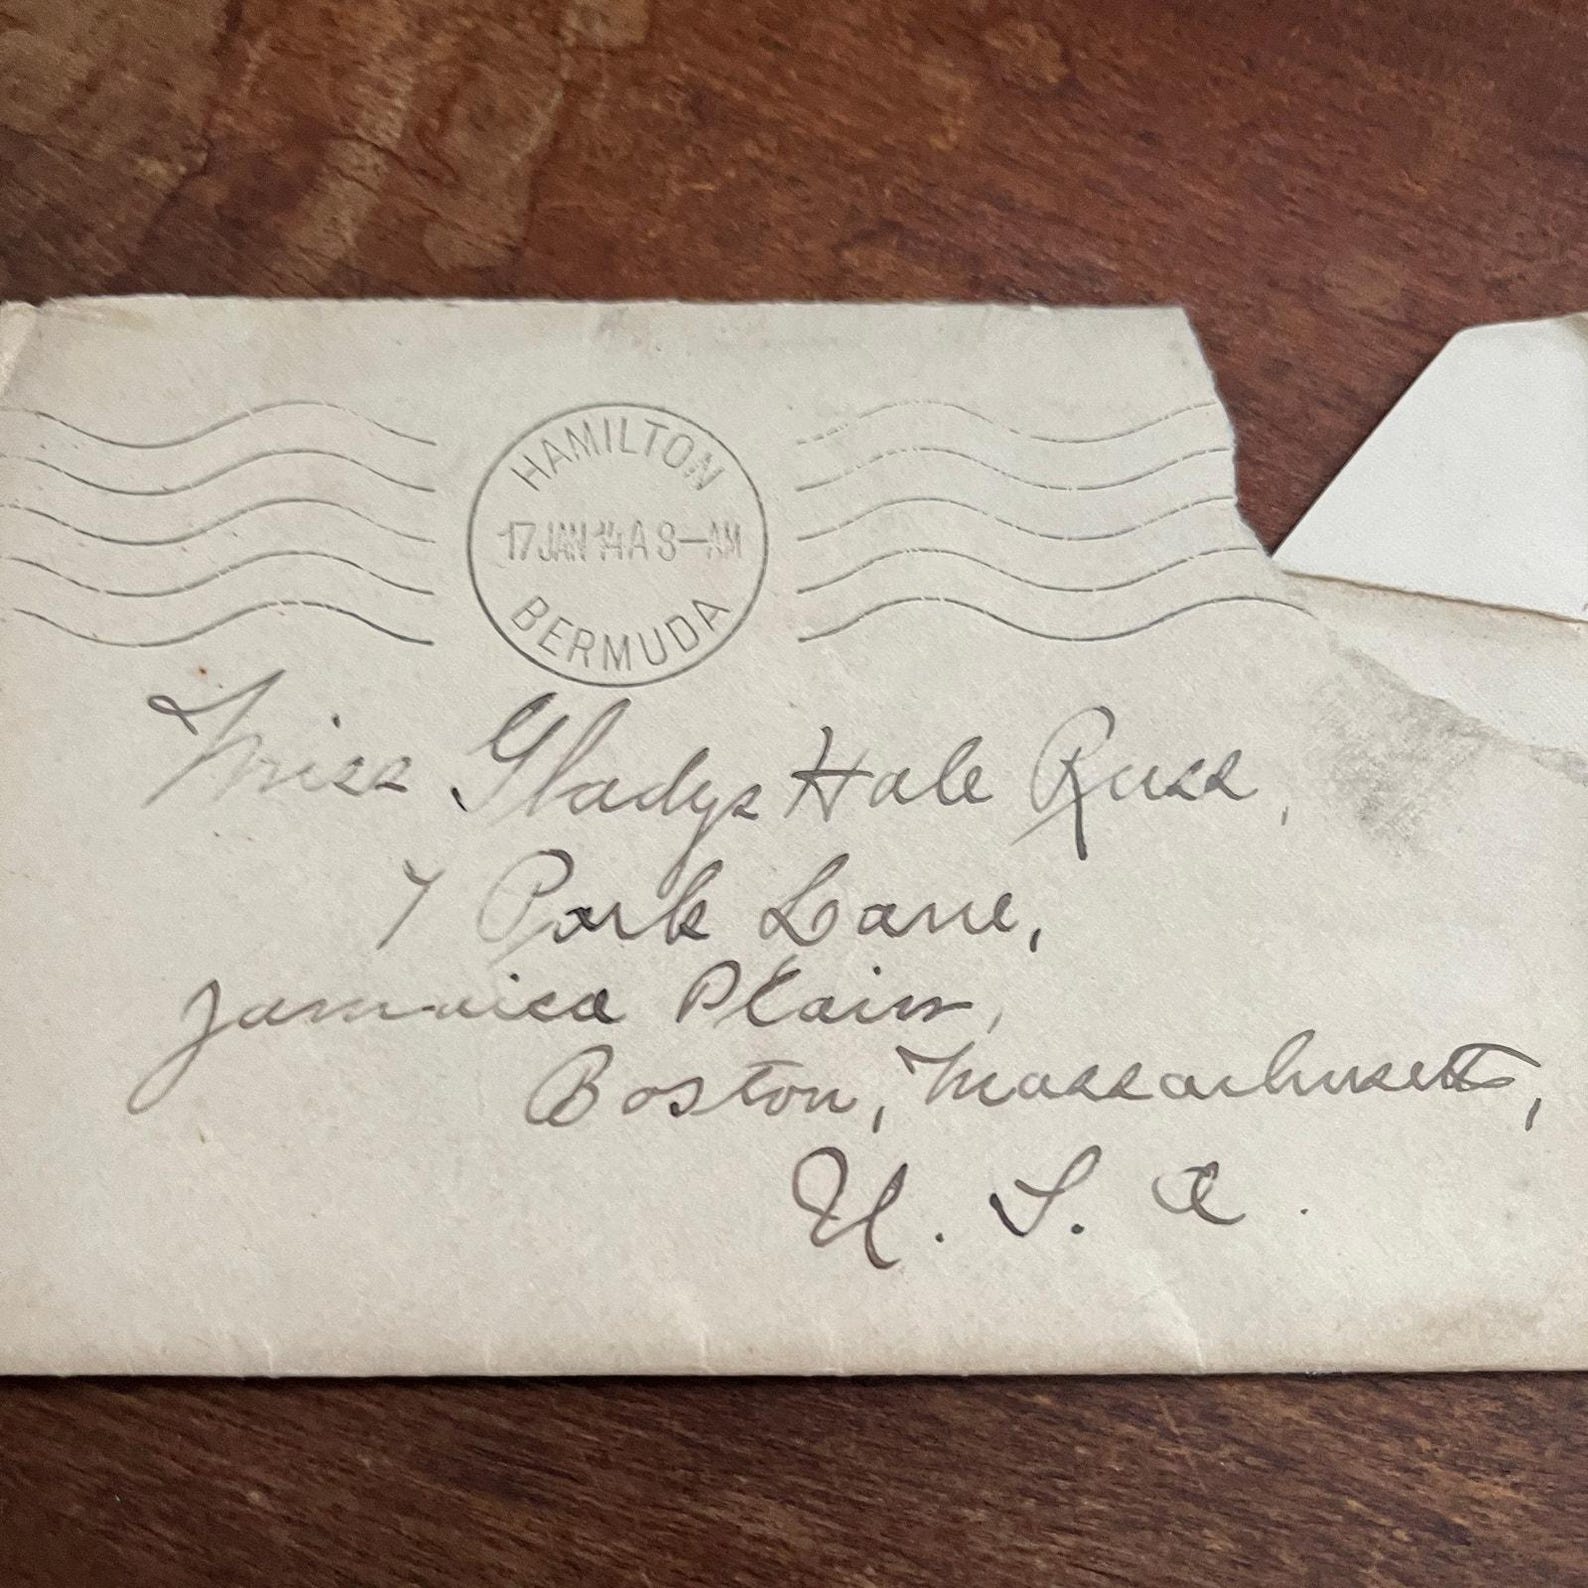 HAMILTON
17 JAN 14 A 8-AM
BERMUDA
Miss Gladys Hale Russ,
7 Park Lane,
Jamaica Plain,
Boston, Massachusetts,
U. S. A.